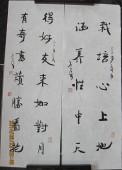 栽培心上地
涵養性中天
得好友來如對月
有奇書讀勝看花